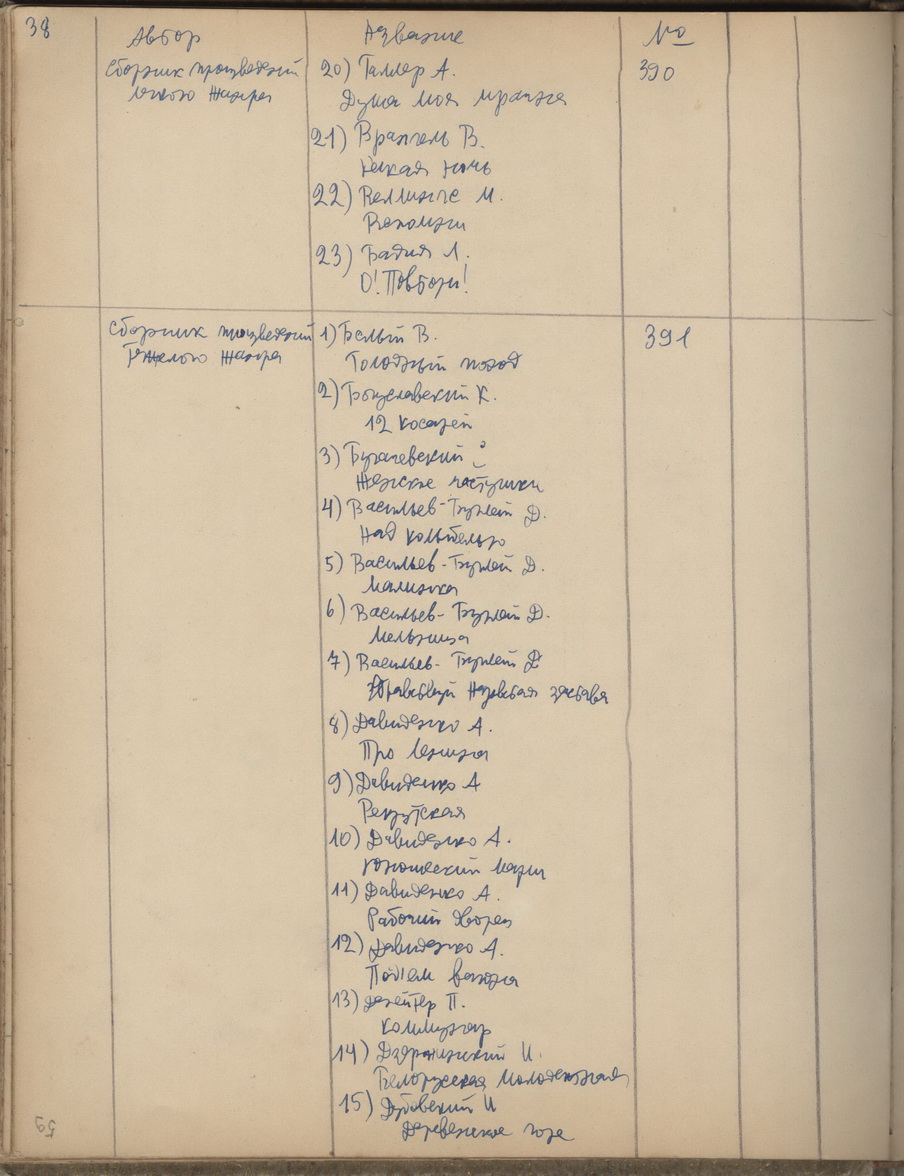 38
Автор
Название
№
Сборник произведений
легкого жанра
20) Таллер А.
Душа моя мрачна
390
21) Врангель В.
ночь
22) Веллингс М.
Вспомни
23) Бадия Л.
О! Повтори!
Сборник произведений
Тяжелого жанра
1) Белый В.
Голодный поход
391
2) Богуславский К.
12 косарей
3) Бугачевский ?
Женские частушки
4) Васильев-Буглай Д.
Над колыбелью
5) Васильев-Буглай Д.
Малинка
6) Васильев-Буглай Д.
Мельница
7) Васильев-Буглай Д
Здравствуй Нарвская застава
8) Давиденко А.
Про Ленина
9) Давиденко А
Рекрутская
10) Давиденко А.
Юношеский марш
11) Давиденко А.
Рабочий дворец
12) Давиденко А.
Под'ем вагона
13) Дегейтер П.
Коммунар
14) И.
Белорусская молодежная
15) Дубовский И
Деревенское горе
59